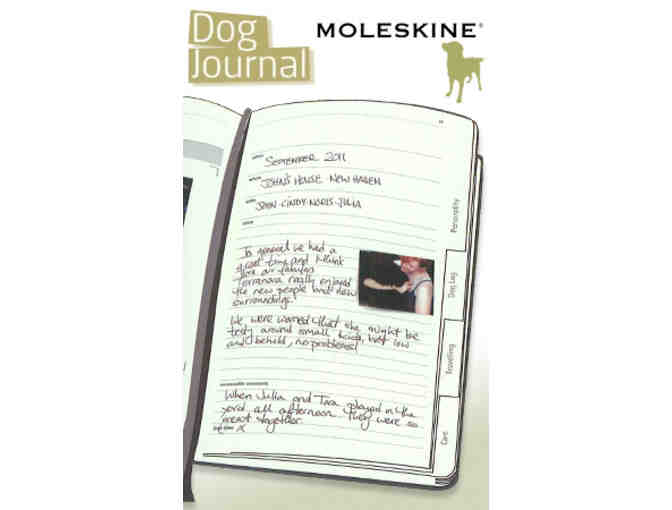 Dog
Journal
MOLESKINE®
September 2011
John's House New Haven
John Cindy Noris Julia
In general we had a
great time and I think
that our fabulous
Terranova really enjoyed
the new people and new
surroundings!
We were worried that she might be
testy around small kids, but low
and behold, no problems!
memorable moments
When Julia and Tara played in the
yard all afternoon. They were so
great together
Personality
Dog Log
Travelling
Care